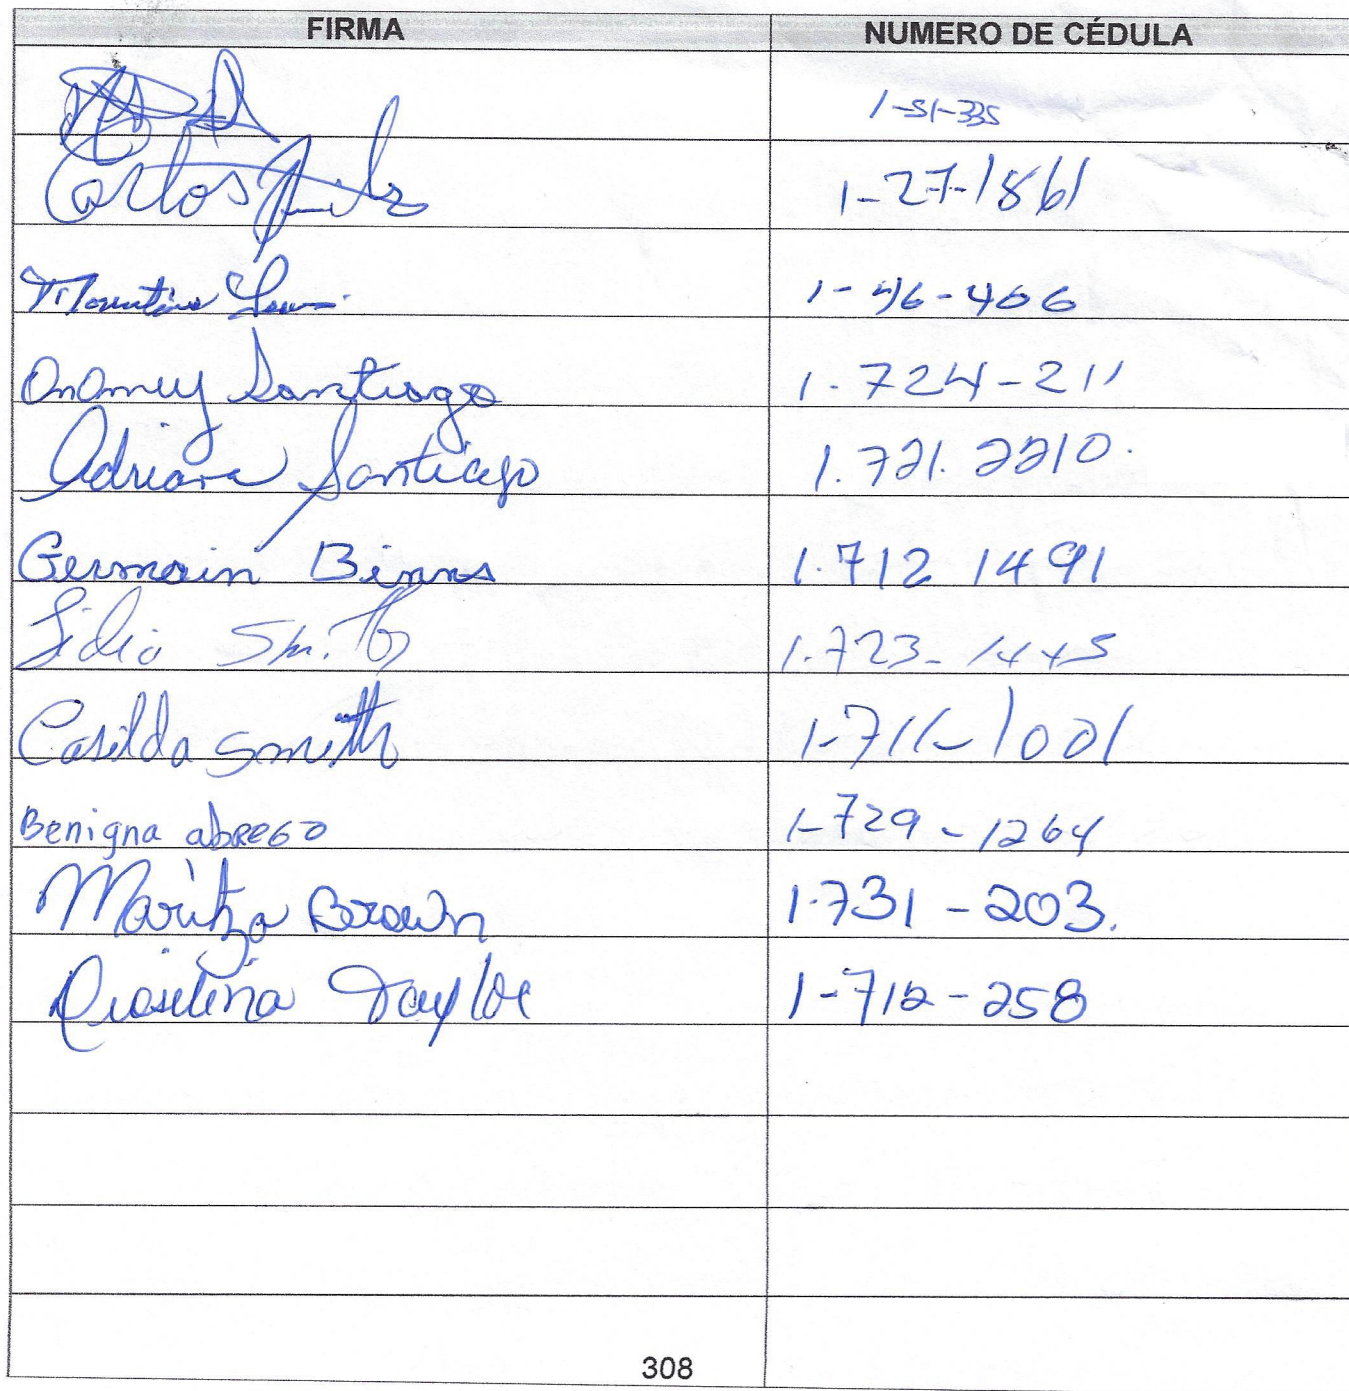 FIRMA NUMERO DE CÉDULA
1-51-335
Carlos 1-27-1861
1-46-406
Santiago 1.724-211
Adriana Santiago 1.721.2210.
Germain Binns 1.712 1491
Lidia Smith 1.723-1445
Casilda Smith 1-711-1001
Benigna abREGO 1-729-1264
Maritza Brown 1-731-203.
Taylor 1-712-258
308